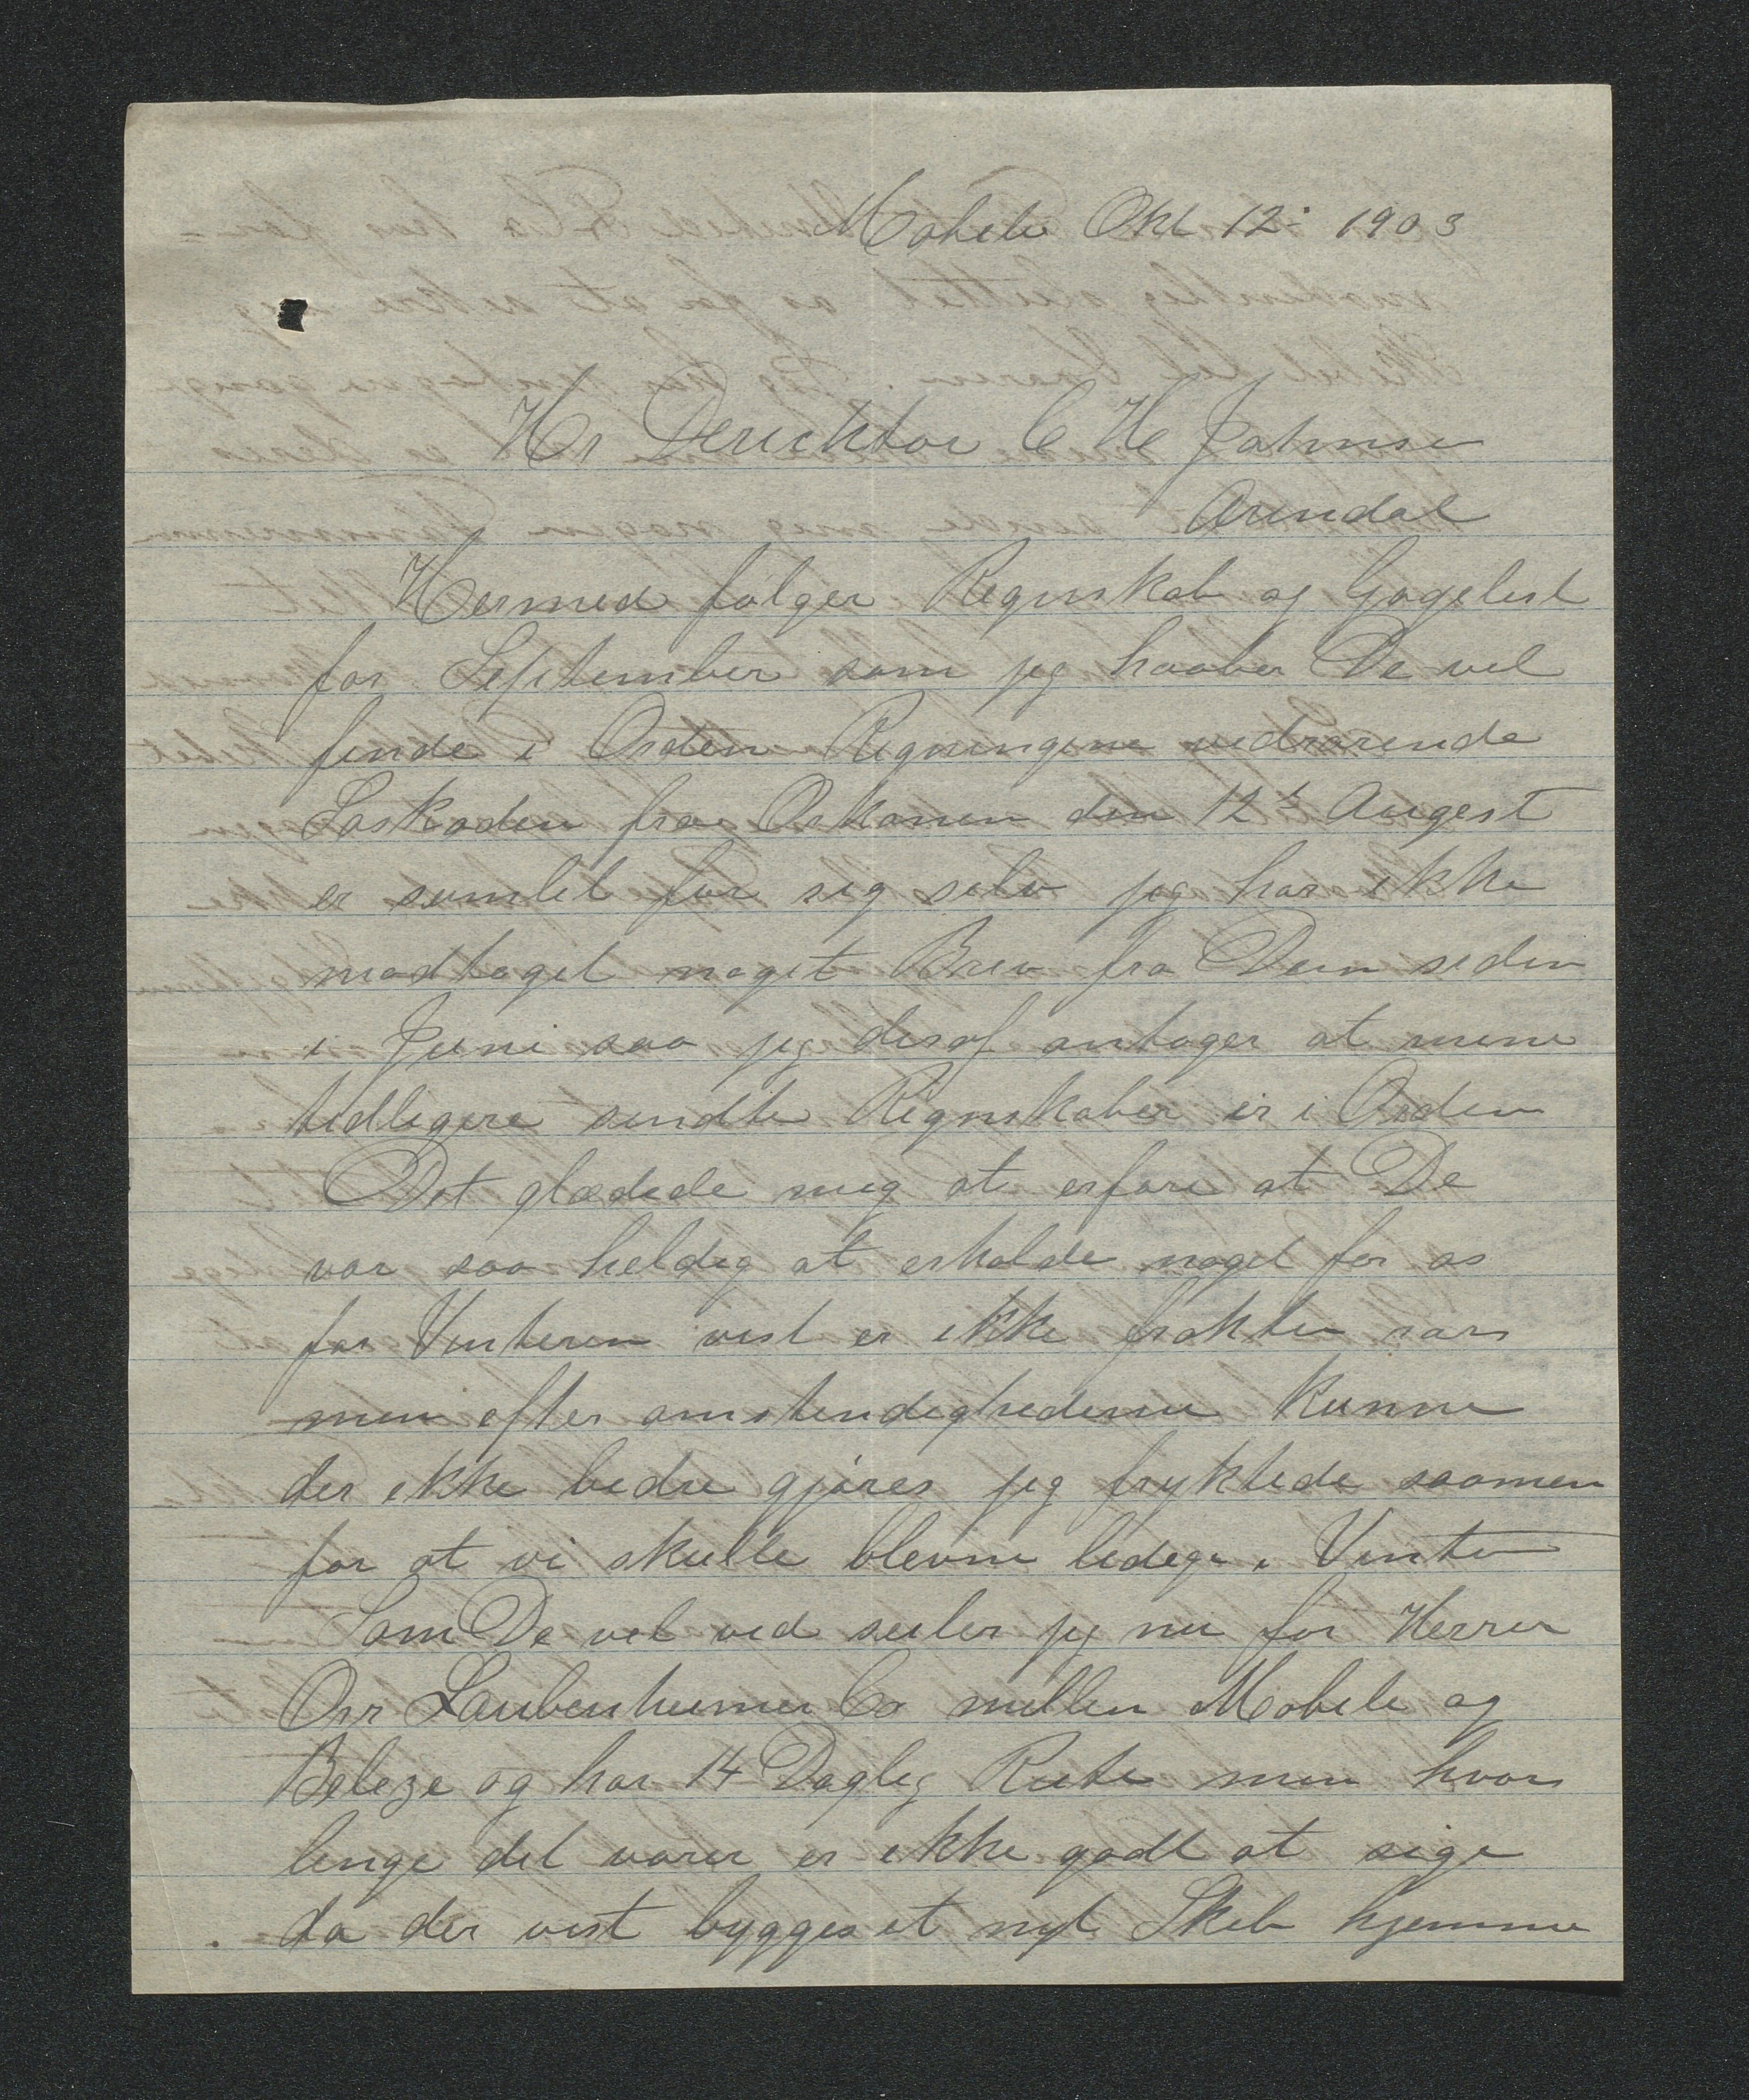 Mobile Okt 12: 1903
Hr Direcktør C H Johnsen
Arendal
Hermed følger Regnskab og Gagelist
for September som jeg haaber De vil
finde i Orden Regningene vedrørende
Søskaden fra Orkanen den 12te Augest
er samlet for sig selv jeg har ikke
modtaget noget Brev fra Dem siden
i Juni saa jeg deraf antager at mine
tidligere sendte Regnskaber er i Orden
Det glædede mig at erfare at De
var saa heldig at erholde noget for os
for Vinteren vist er ikke frakten rar
men efter omstendighederne kunne
der ikke bedre gjøres jeg fryktede saamen
for at vi skulle blevne ledige i Vinter
Som De vel ved seiler jeg nu for Herrer
Orr Laubenheimer Co mellen Mobile og
Beleze og har 14 Daglig Rute men hvor
lenge det varer er ikke godt at sige
da der vist bygges et nyt Skib hjemme